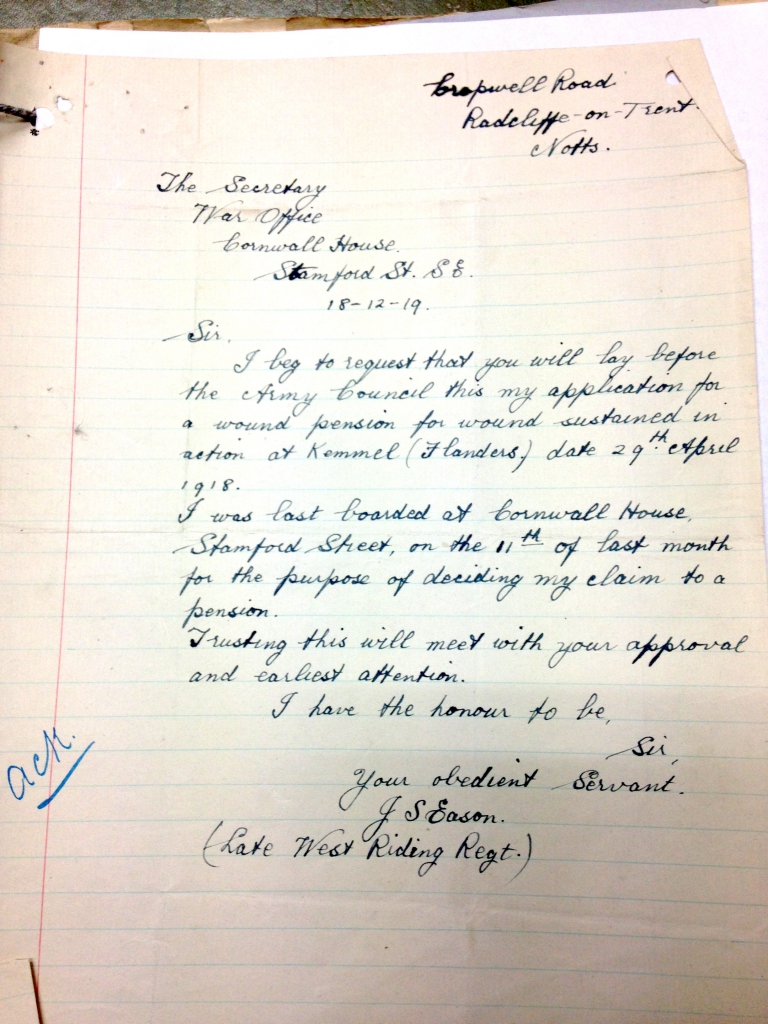 Cropwell Road
Radcliffe-on-Trent
Notts.
The Secretary
War Office
Cornwall House.
Stamford St. S E.
18-12-19.
Sir,
I beg to request that you will lay before
the Army Council this my application for
a wound pension for wound sustained in
action at Kemmel (Flanders,) date 29th April
1918.
I was last boarded at Cornwall House,
Stamford Street, on the 11th of last month
for the purpose of deciding my claim to a
pension.
Trusting this will meet with your approval
and earliest attention.
I have the honour to be,
Sir,
Your obedient Servant.
J S Eason.
(Late West Riding Regt.)
ack.